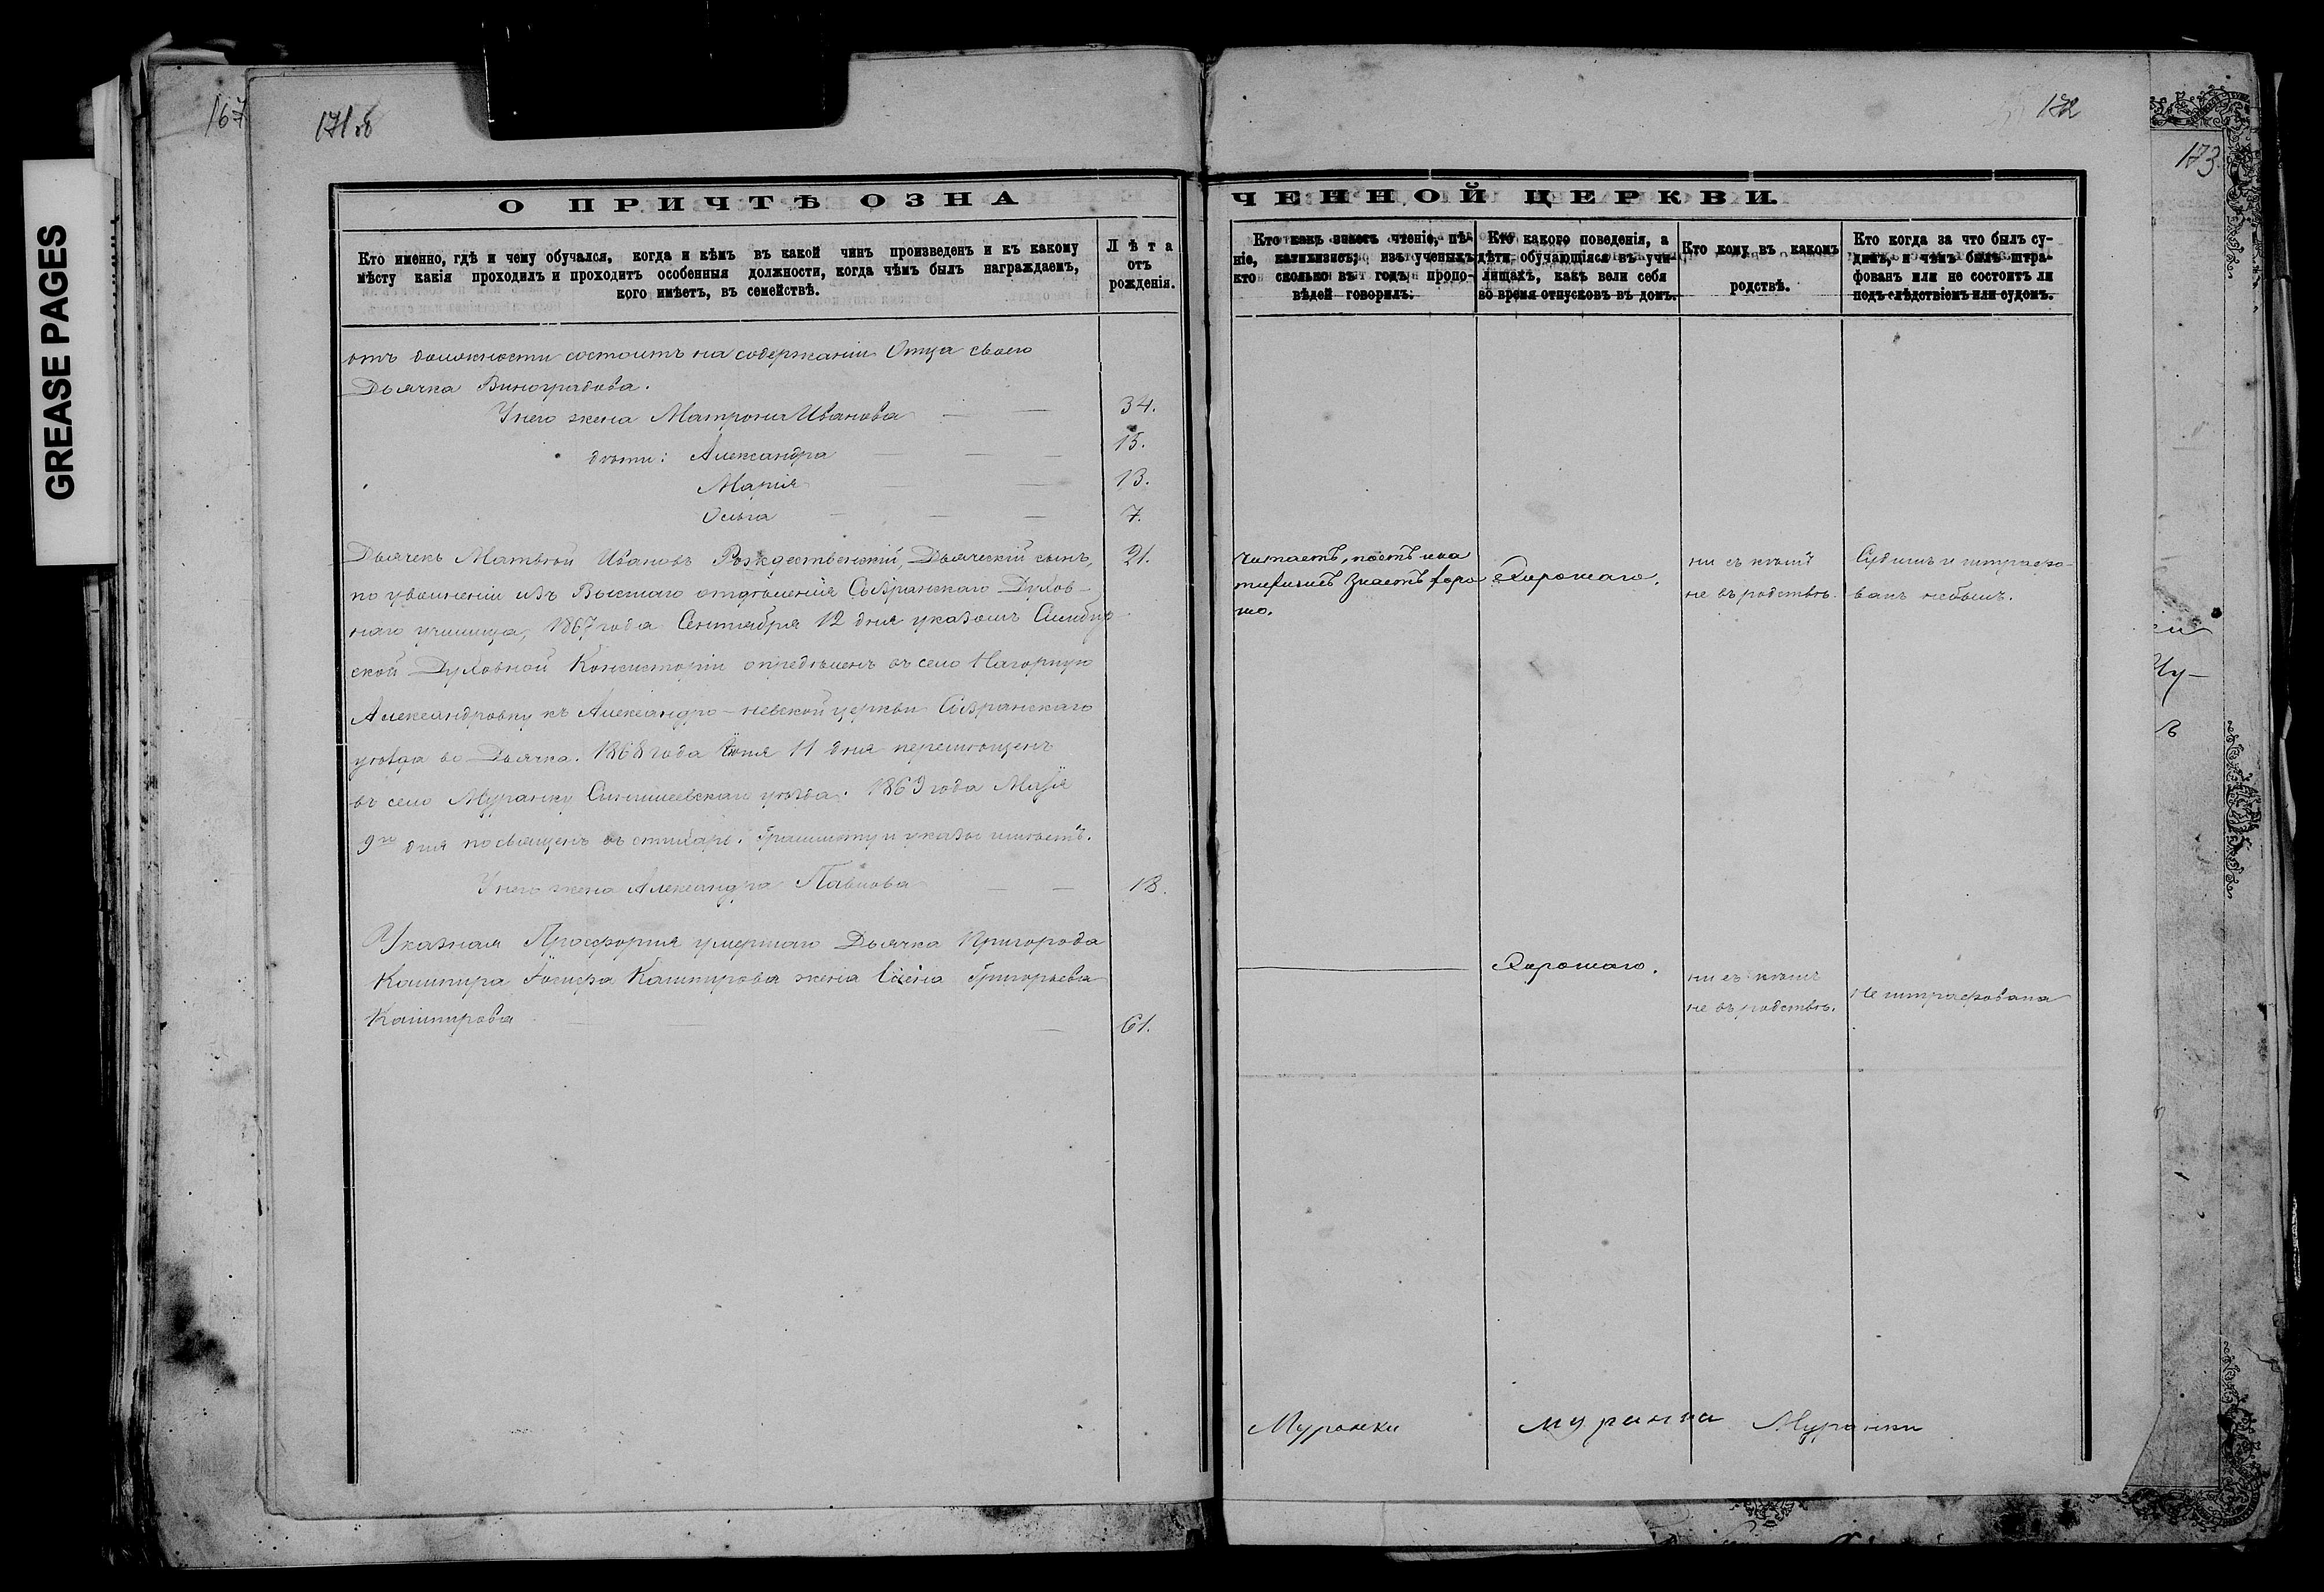 GREASE PAGES
167
171об
172
173
О ПРИЧТѢ ОЗНА
ЧЕННОЙ ЦЕРКВИ.
Кто именно, гдѣ и чему обучался, когда и кѣмъ въ какой чинъ произведенъ и къ какому
мѣсту какія проходилъ и проходитъ особенныя должности, когда чѣмъ былъ награждаемъ,
кого имѣетъ, въ семействѣ.
Лѣта
отъ
рожденія.
Кто какъ знаетъ чтеніе, пѣ-
ніе, катихизисъ; изъ ученыхъ
кто сколько въ годъ пропо-
вѣдей говорилъ.
Кто какого поведенія, а
дѣти обучающіяся въ учи-
лищахъ, какъ вели себя
во время отпусковъ въ домъ.
Кто кому въ какомъ
родствѣ.
Кто когда за что былъ су-
димъ, и чѣмъ былъ штра-
фованъ или не состоитъ ли
подъ слѣдствіемъ или судомъ.
отъ должности состоитъ на содержаніи Отца своего
Дьячка Виноградова.
У него жена Матрона Иванова 34.
дѣти: Александра 15.
Марія 13.
Ольга 7.
Дьячекъ Матвѣй Ивановъ Рождественскій, Дьяческій сынъ, 21.
по увольненіи изъ Высшаго отдѣленія Сызранскаго Духов-
наго училища, 1867 года Сентября 12 дня указомъ Симбир
ской Духовной Консисторіи опредѣленъ въ село Нагорную
Александровку къ Александро-невской церкви Сызранскаго
уѣзда во Дьячка. 1868 года Іюня 11 дня перемѣщенъ
въ село Муранку Сенгилеевскаго уѣзда. 1869 года Маія
9го дня посвященъ въ стихарь. Граммоту и указы имѣетъ.
У него жена Александра Павлова 18.
Читаетъ, поетъ и ка
тихизисъ знаетъ хоро
шо.
Хорошаго.
ни съ кѣмъ
не въ родствѣ.
Судимъ и штрафо-
ванъ небылъ.
Указная Просфорня умершаго Дьячка Пригорода
Кашпира Іосифа Кашпирова жена Елена Григорьева
Кашпирова 61.
Хорошаго.
ни съ кѣмъ
не въ родствѣ.
Не штрафована
Муранки
Муранка
Муранки